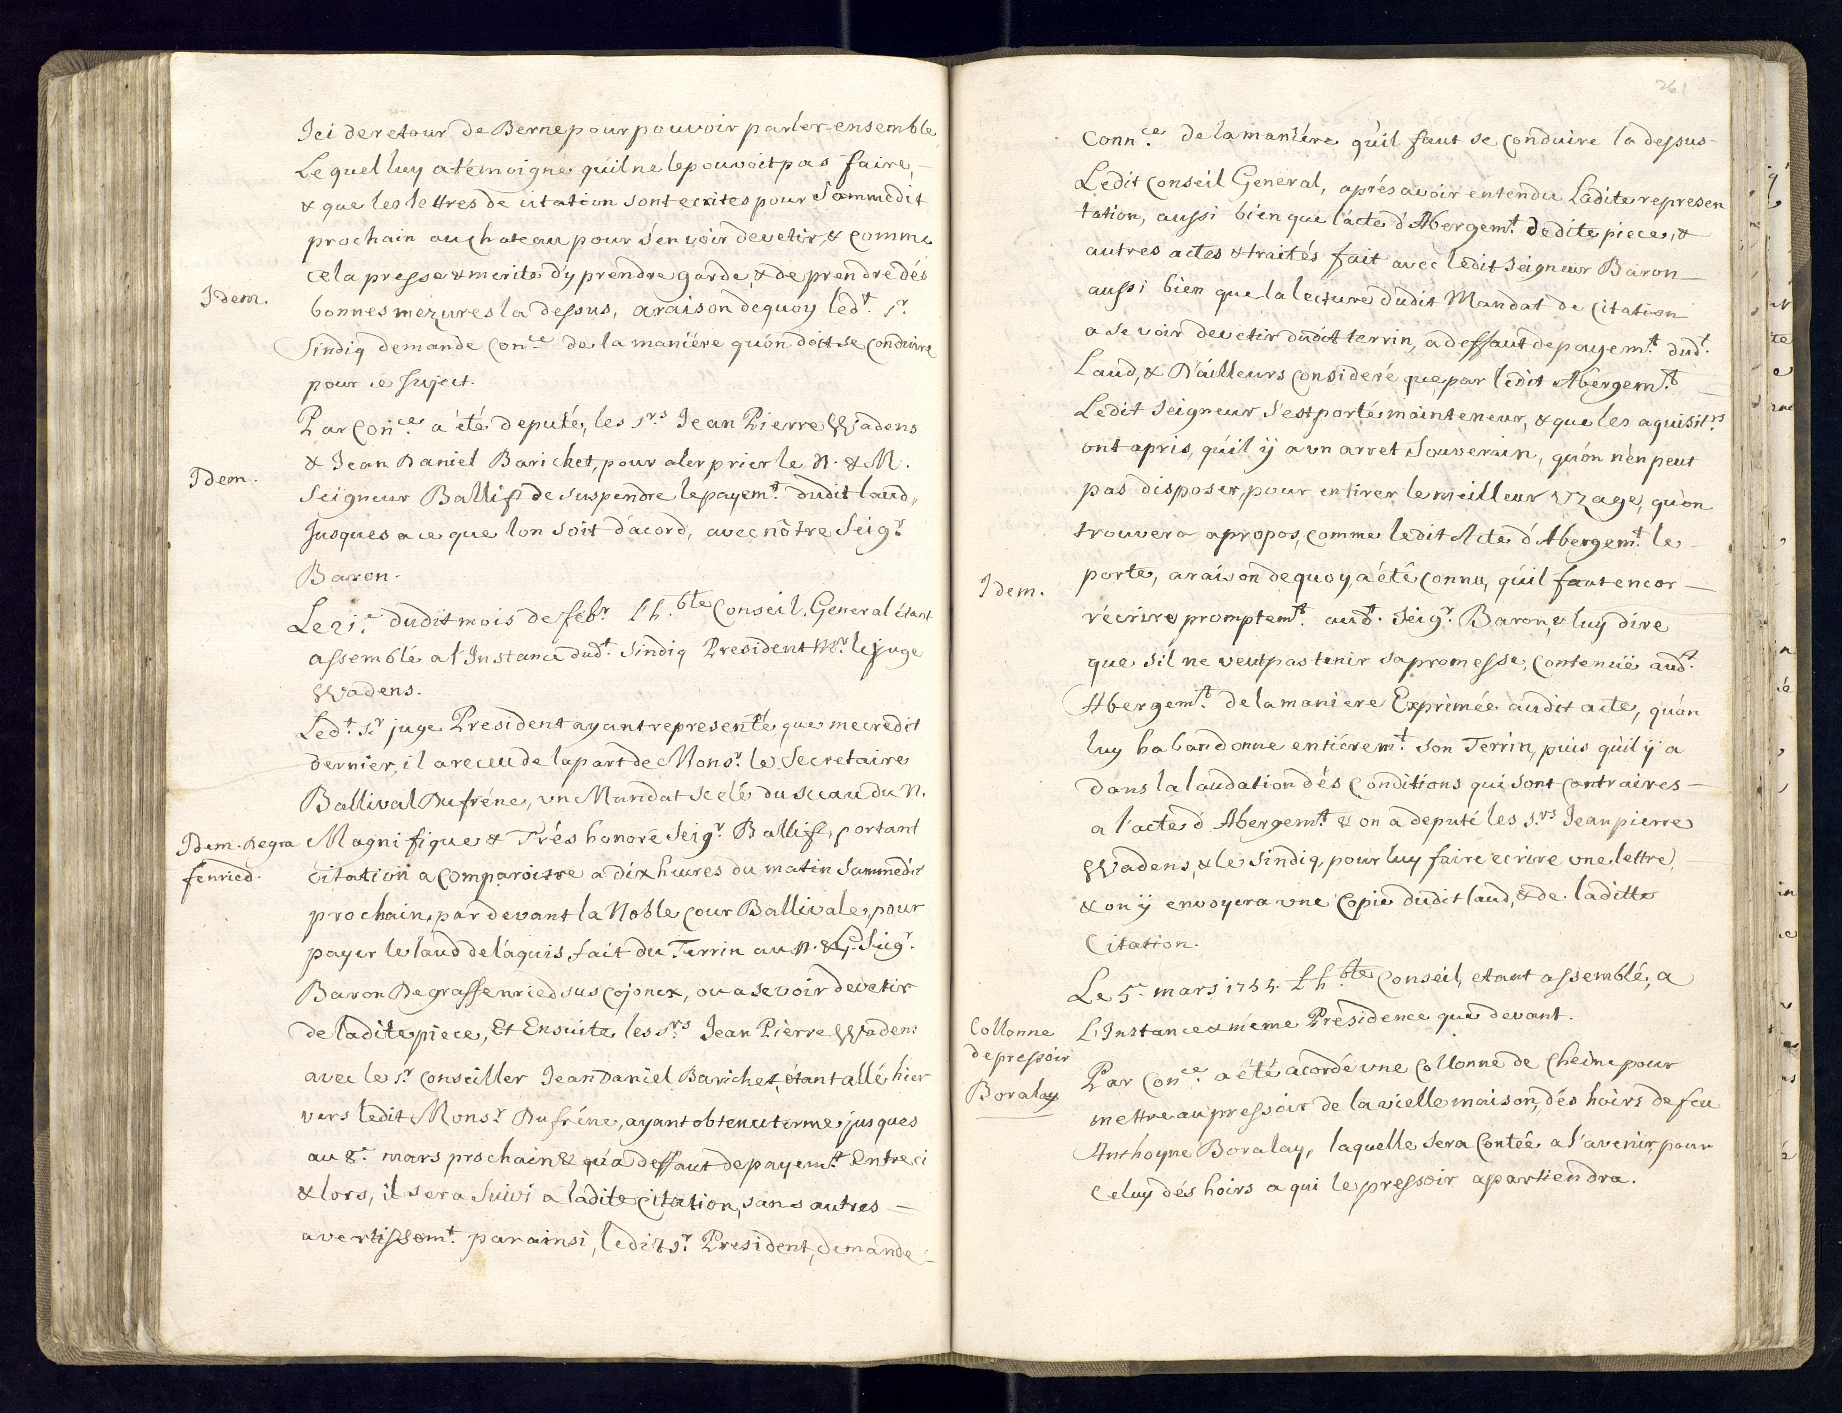 Ici de retour de Berne pour pouvoir parler ensemble
Lequel luy a témoigné qu'il ne le pouvoit pas faire, —
& que les lettres de citation sont ecrites pour Sammedit
prochain au chateau pour s'en voir devetir, & comme
cela presse & merite d'y prendre garde, & de prendre dés
Idem.
bonnes mezures la dessus, a raison de quoy led.t S.r
Sindiq demande Con.ce de la maniére qu'on doit se conduire
pour ce suject.
Par Con.ce a été deputé, les S.rs Jean Pierre Wadens
Idem.
& Jean Daniel Barichet, pour aler prier le N. & M.
Seigneur Ballif de suspendre le payem.t dudit laud,
Jusques a ce que lon soit d'acord, avec nôtre Seig.r
Baron.
Le 21.e dudit mois de feb.r L'h.ble Conseil General étant
assemblé a l'Instance dud.t Sindiq President M.r le juge
Wadens.
Led.t S.r juge President ayant representé que mecredit
dernier, il a receu de la part de Mons.r le Secretaire
Ballival Dufréne, vn Mandat scélé du sceau du N.
Idem. Degra
fenried.
Magnifique & Trés honoré Seig.r Ballif, portant
citation a comparoitre a dix heures du matin Sammedit
prochain, par devant la Noble Cour Ballivale, pour
payer le laud de l'aquis fait du Terrin au N. & G. Seig.r
Baron De graffenried sus Cojonex, ou a se voir devetir
de ladite piece, Et Ensuite les S.rs Jean Pierre Wadens
avec le S.r Conseiller Jean Daniel Barichet, étant allé hier
vers ledit Mons.r Dufréne, ayant obtenu terme jusques
au 8.e mars prochain & qu'a deffaut de payem.t Entre ci
& lors, il sera Suivi a ladite Citation, sans autres —
avertissem.t par ainsi, ledit S.r President, demande
261
Conn.ce de la maniére qu'il faut se conduire la dessus
Ledit Conseil General, aprés avoir entendu Ladite represen
tation, aussi bien que l'acte d'Abergem.t de dite piece, &
autres actes & traités fait avec ledit Seigneur Baron —
aussi bien que la lecture dudit Mandat de Citation
a se voir devetir dudit terrin, a deffaut de payem.t dud.t
Laud, & D'ailleurs consideré que par ledit Abergem.t
Ledit Seigneur s'est porté mainteneur, & que les aquisit.rs
ont apris, qu'il ÿ a vn arret Souverain, qu'on n'en peut
pas disposer, pour en tirer le meilleur vzage, qu'on
trouvera apropos, comme ledit Acte d'Abergem.t le
Idem.
porte, a raison de quoy, a été connu, qu'il faut encor —
récrire promptem.t aud.t Seig.r Baron, & luy dire
que s'il ne veut pas tenir sa promesse, contenüe aud.t
Abergem.t de la maniere Exprimée audit acte, qu'on
luy habandonne entiérem.t son Terrin, puis qu'il ÿ a
dans la laudation dés Conditions qui sont contraires —
a l'acte d'Abergem.t & on a deputé les S.rs Jean pierre
Wadens, & le Sindiq, pour luy faire ecrire vne lettre,
& on ÿ envoyera vne Copie dudit laud, & de laditte
Citation.
Le 5.e mars 1755. L'h.ble Conseil, etant assemblé, a
L'Instance & meme Présidence que devant.
Collonne
de pressoir
Boralay
Par Con.ce a été acordé vne Collonne de Cheine pour
mettre au pressoir de la vielle maison, dés hoirs de feu
Anthoyne Boralay, laquelle sera contée a l'avenir, pour
celuy dés hoirs a qui le pressoir apartiendra.